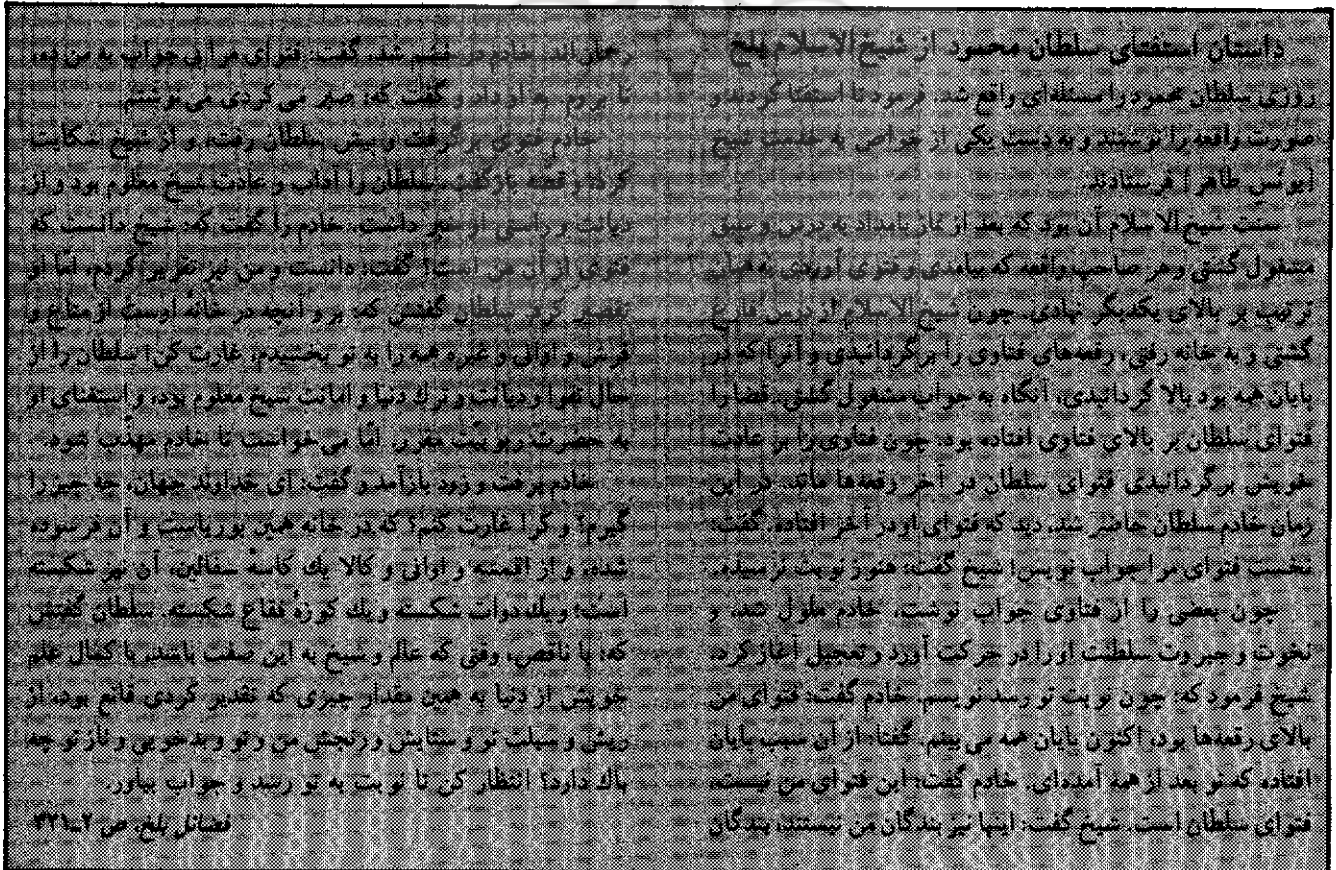 داستان استفتای سلطان محمود از شیخ‌الاسلام بلخ
روزی سلطان محمود را مسئله‌ای واقع شد. فرمود تا استفتا کردند و
صورت واقعه را نوشتند و به دست یکی از خواص به خدمت شیخ
[یونس طاهر] فرستادند.
سنّت شیخ‌الاسلام آن بود که بعد از نماز بامداد به درس و سبق
مشغول گشتی و هر صاحب واقعه که بیامدی و فتوی آوردی به همان
ترتیب بر بالای یکدیگر نهادی. چون شیخ‌الاسلام از درس فارغ
گشتی و به خانه رفتی، رقعه‌های فتاوی را برگردانیدی و آنرا که در
پایان همه بود بالا گردانیدی، آنگاه به جواب مشغول گشتی. قضا را
فتوای سلطان بر بالای فتاوی افتاده بود. چون فتاوی را بر عادت
خویش برگردانیدی فتوای سلطان در آخر رقعه‌ها ماند. در این
زمان خادم سلطان حاضر شد، دید که فتوای او در آخر افتاده. گفت:
نخست فتوای مرا جواب نویس! شیخ گفت: هنوز نوبت نرسیده.
چون بعضی را از فتاوی جواب نوشت، خادم ملول شد، و
نخوت و جبروت سلطنت او را در حرکت آورد و تعجیل آغاز کرد.
شیخ فرمود که: چون نوبت تو رسد نویسم. خادم گفت: فتوای من
بالای رقعه‌ها بود، اکنون پایان همه می‌بینم. گفتا: از آن سبب پایان
افتاده که تو بعد از همه آمده‌ای. خادم گفت: این فتوای من نیست،
فتوای سلطان است. شیخ گفت: اینها نیز بندگان من نیستند، بندگان
رحمان‌اند. خادم در خشم شد، گفت: فتوای مرا بی جواب به من ده،
تا بروم. به او داد و گفت که: صبر می‌کردی می‌نوشتم.
خادم فتوی بر گرفت و پیش سلطان رفت، و از شیخ شکایت
کرد و قصه بازگفت. سلطان را آداب و عادت شیخ معلوم بود و از
دیانت و راستی او خبر داشت، خادم را گفت که: شیخ دانست که
فتوی از آن من است؟ گفت: دانست و من نیز تقریر کردم، امّا او
تقصیر کرد. سلطان گفتش که: برو آنچه در خانهٔ اوست از متاع و
فرش و اوانی و غیره همه را به تو بخشیدم، غارت کن! سلطان را از
حال تقوا و دیانت و ترك دنیا و امانت شیخ معلوم بود، و استغنای او
به حضرت ربوبیّت مقرر. امّا می‌خواست تا خادم مهذّب شود.
خادم برفت و زود بازآمد و گفت: ای خداوند جهان، چه چیز را
گیرم؟ و کرا غارت کنم؟ که در خانه همین بوریاست و آن فرسوده
شده، و از اقمشه و اوانی و کالا یك کاسهٔ سفالین، آن نیز شکسته
است؛ و یك دوات شکسته و یك کوزهٔ فقاع شکسته. سلطان گفتش
که: یا ناقص، وقتی که عالم و شیخ به این صفت باشد، با کمال علم
خویش از دنیا به همین مقدار چیزی که تقدیر کردی قانع بود، از
ریش و سبلت تو و ستایش و رنجش من و تو و بدخویی و ناز تو چه
باك دارد؟ انتظار کن تا نوبت به تو رسد و جواب بیاور.
فضائل بلخ، ص ۲ـ۳۲۱